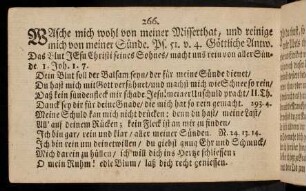 266.
Wasche mich wohl von meiner Missethat, und reinige
mich von meiner Sünde. Ps. 51. v. 4. Göttliche Antw.
Das Blut JEsu Christi seines Sohnes, macht uns rein von aller Sün-
de. 1. Joh. 1. 7.
Dein Blut soll der Balsam seyn, der für meine Sünde dienet,
Du hast mich mit Gott versühnet, und machst mich wie Schnee so rein,
Daß kein sündenfleck mir schade, JEsu, meiner Unschuld pracht, II. Th.
Danck sey dir für deine Gnade, die mich hat so rein gemacht. 193. 4.
Meine Schuld kan mich nicht drücken: denn du hast, meine Last,
All' auf deinem Rücken; kein Fleck ist an mir zu finden,
Ich bin gar, rein und klar, aller meiner Sünden. N. 14. 13. 14.
Ich bin rein um deinetwillen, Du giebst gnug Ehr und Schmuck,
Mich darein zu hüllen, ich will dich ins Hertze schliessen;
O mein Ruhm! edle Blum, laß dich recht geniessen.